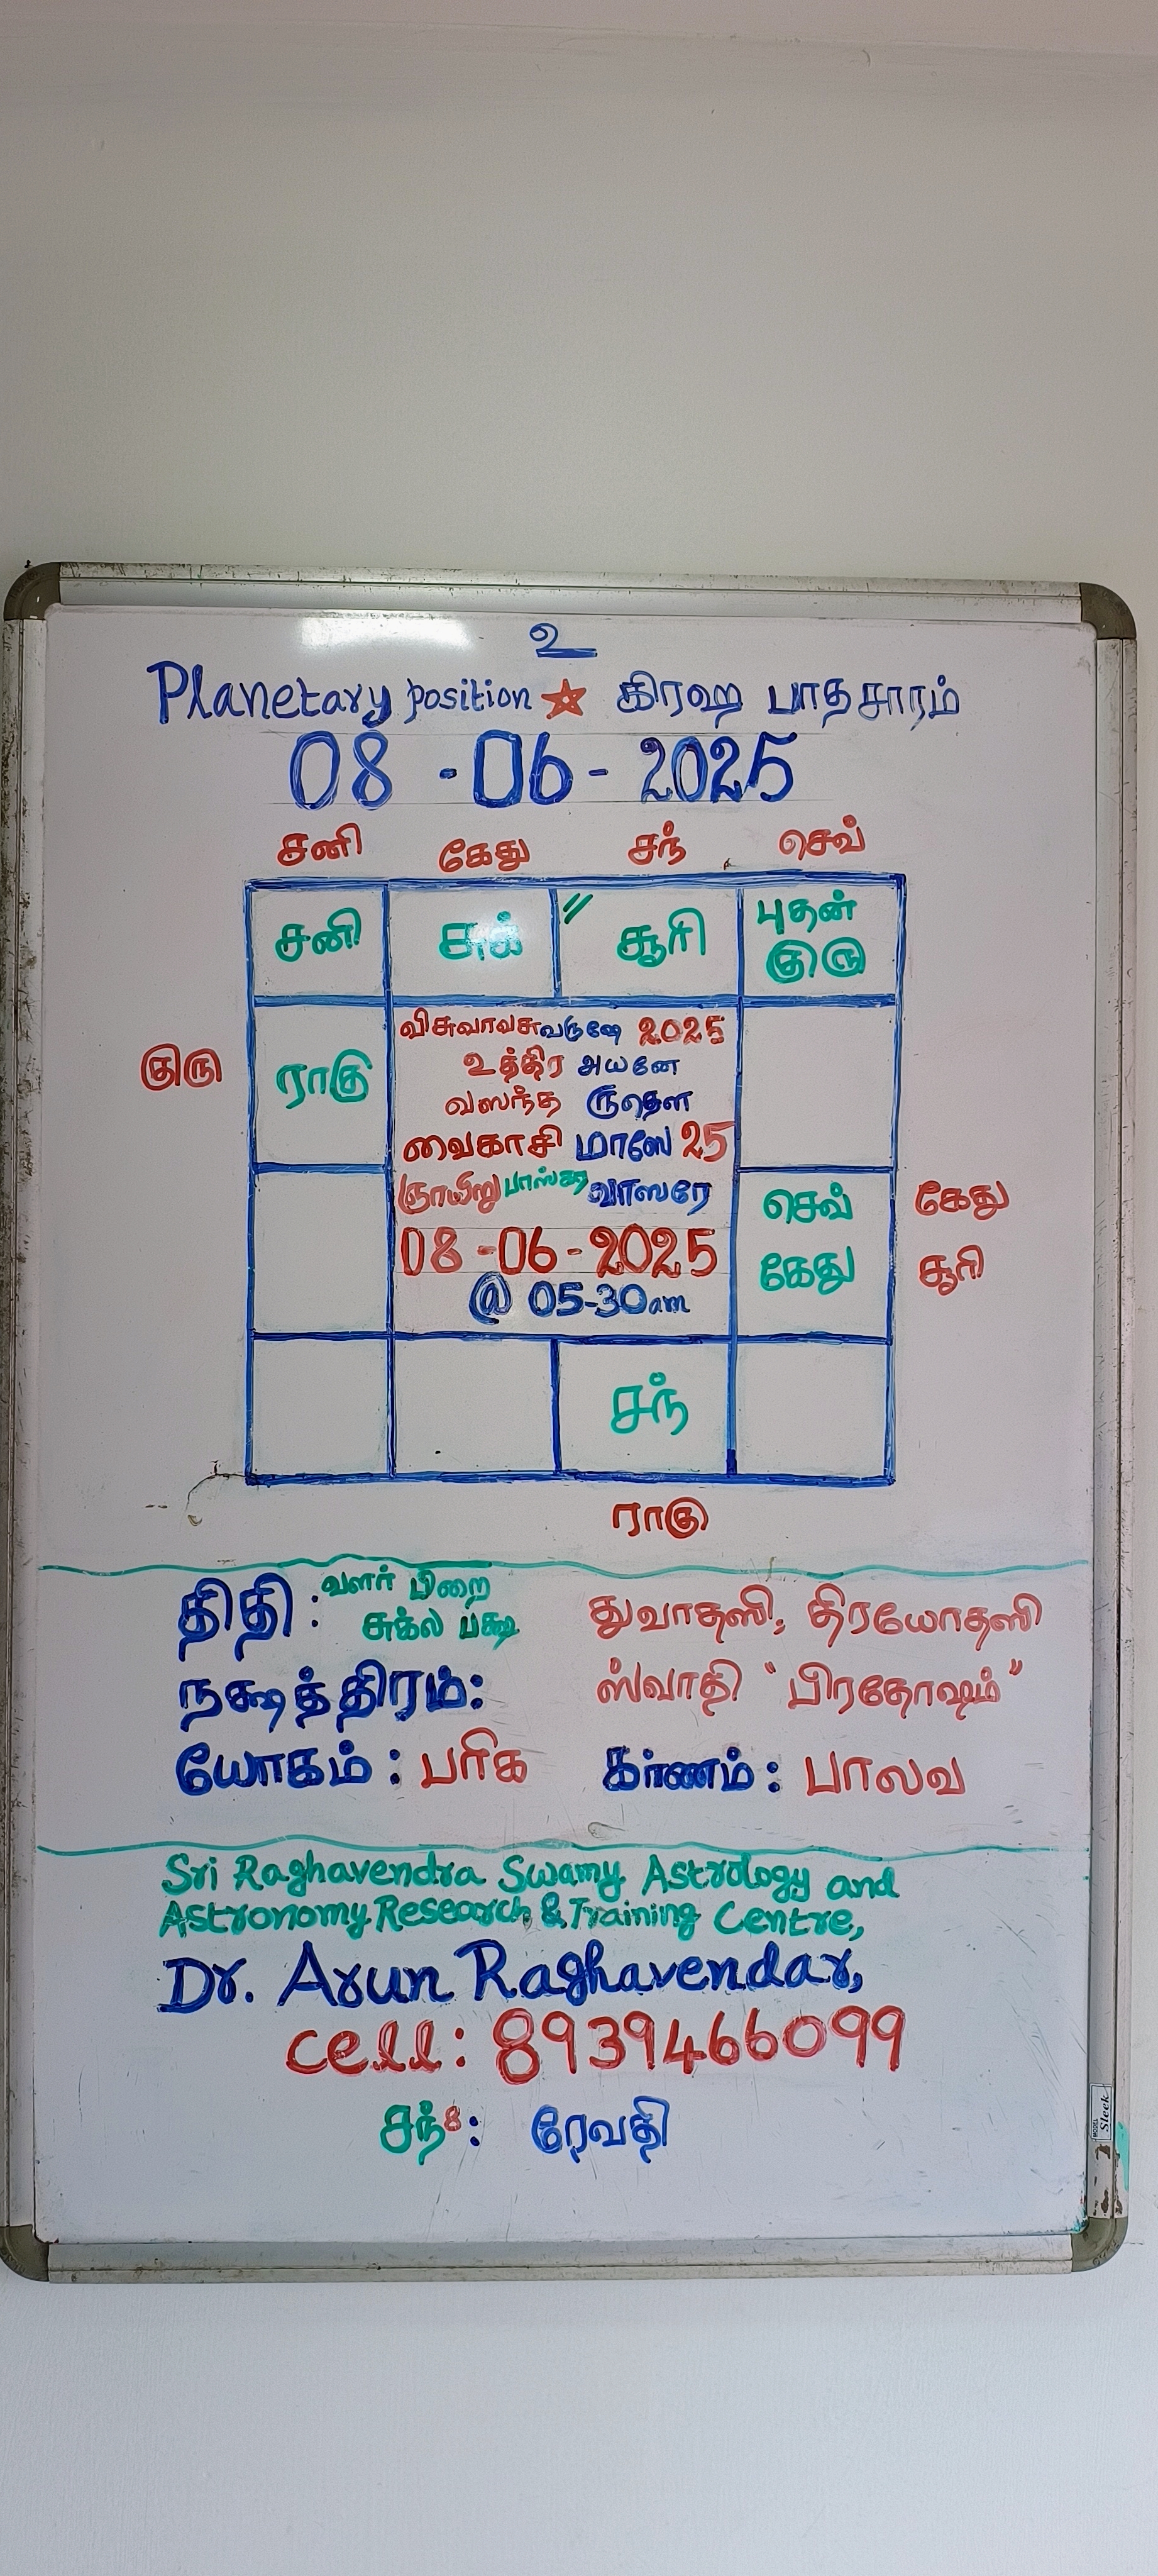 உ
Planetary position ☆ கிரஹ பாதசாரம்
08 - 06 - 2025
சனி கேது சந் செவ்
சனி சுக் // சூரி புதன்
குரு
விசுவாவசு வருஷே 2025
உத்திர அயனே
குரு ராகு வஸந்த ருதௌ
வைகாசி மாஸே 25
ஞாயிறு பாஸ்கர வாஸரே செவ் கேது
08 - 06 - 2025 கேது சூரி
@ 05-30am
சந்
ராகு
திதி : வளர் பிறை துவாதஸி; திரயோதஸி
சுக்ல பக்ஷ
நக்ஷத்திரம்: ஸ்வாதி "பிரதோஷம்"
யோகம் : பரிக கர்ணம் : பாலவ
Sri Raghavendra Swamy Astrology and
Astronomy Research & Training Centre,
Dr. Arun Raghavendar,
cell: 8939466099
சந்8: ரேவதி
MODEL Sleek